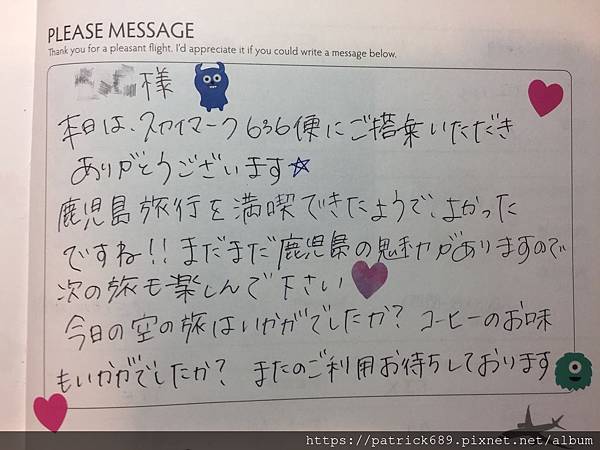 PLEASE MESSAGE
Thank you for a pleasant flight. I'd appreciate it if you could write a message below.
様
本日は、スカイマーク636便にご搭乗いただき
ありがとうございます☆
鹿児島旅行を満喫できたようで、よかった
ですね!!まだまだ鹿児島の魅力がありますので
次の旅も楽しんで下さい
今日の空の旅はいかがでしたか? コーヒーのお味
もいかがでしたか? またのご利用お待ちしております
https://patrick689.pixnet.net/album